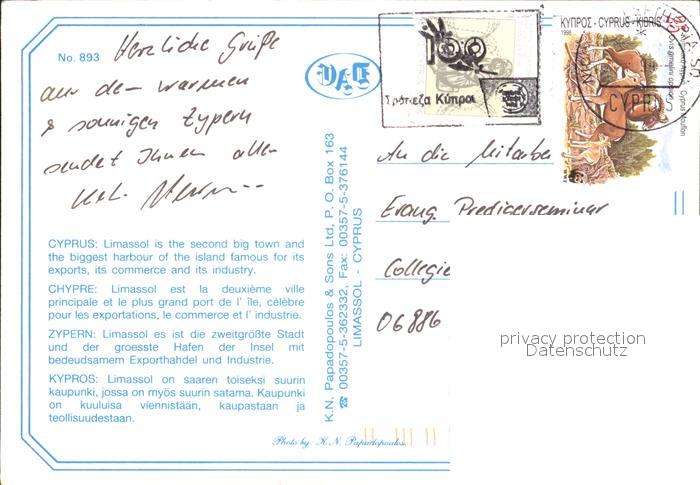 No. 893
Herzliche Grüße
aus dem warmen
& sonnigen Zypern
sendet Ihnen allen
CYPRUS: Limassol is the second big town and
the biggest harbour of the island famous for its
exports, its commerce and its industry.
CHYPRE: Limassol est la deuxième ville
principale et le plus grand port de l' île, célèbre
pour les exportations, le commerce et l' industrie.
ZYPERN: Limassol es ist die zweitgrößte Stadt
und der groesste Hafen der Insel mit
bedeudsamem Exporthahdel und Industrie.
KYPROS: Limassol on saaren toiseksi suurin
kaupunki, jossa on myös suurin satama. Kaupunki
on kuuluisa viennistään, kaupastaan ja
teollisuudestaan.
Photo by: K.N. Papadopoulos.
K.N. Papadopoulos & Sons Ltd, P. O. Box 163
☎ 00357-5-362332, Fax: 00357-5-376144
LIMASSOL - CYPRUS
100
Τράπεζα Κύπρου
ΚΥΠΡΟΣ - CYPRUS - KIBRIS
1998
Cyprus Mouflon
CYPR
An die Mitarbe
Evang. Predigerseminar
Collegie
06886
privacy protection
Datenschutz